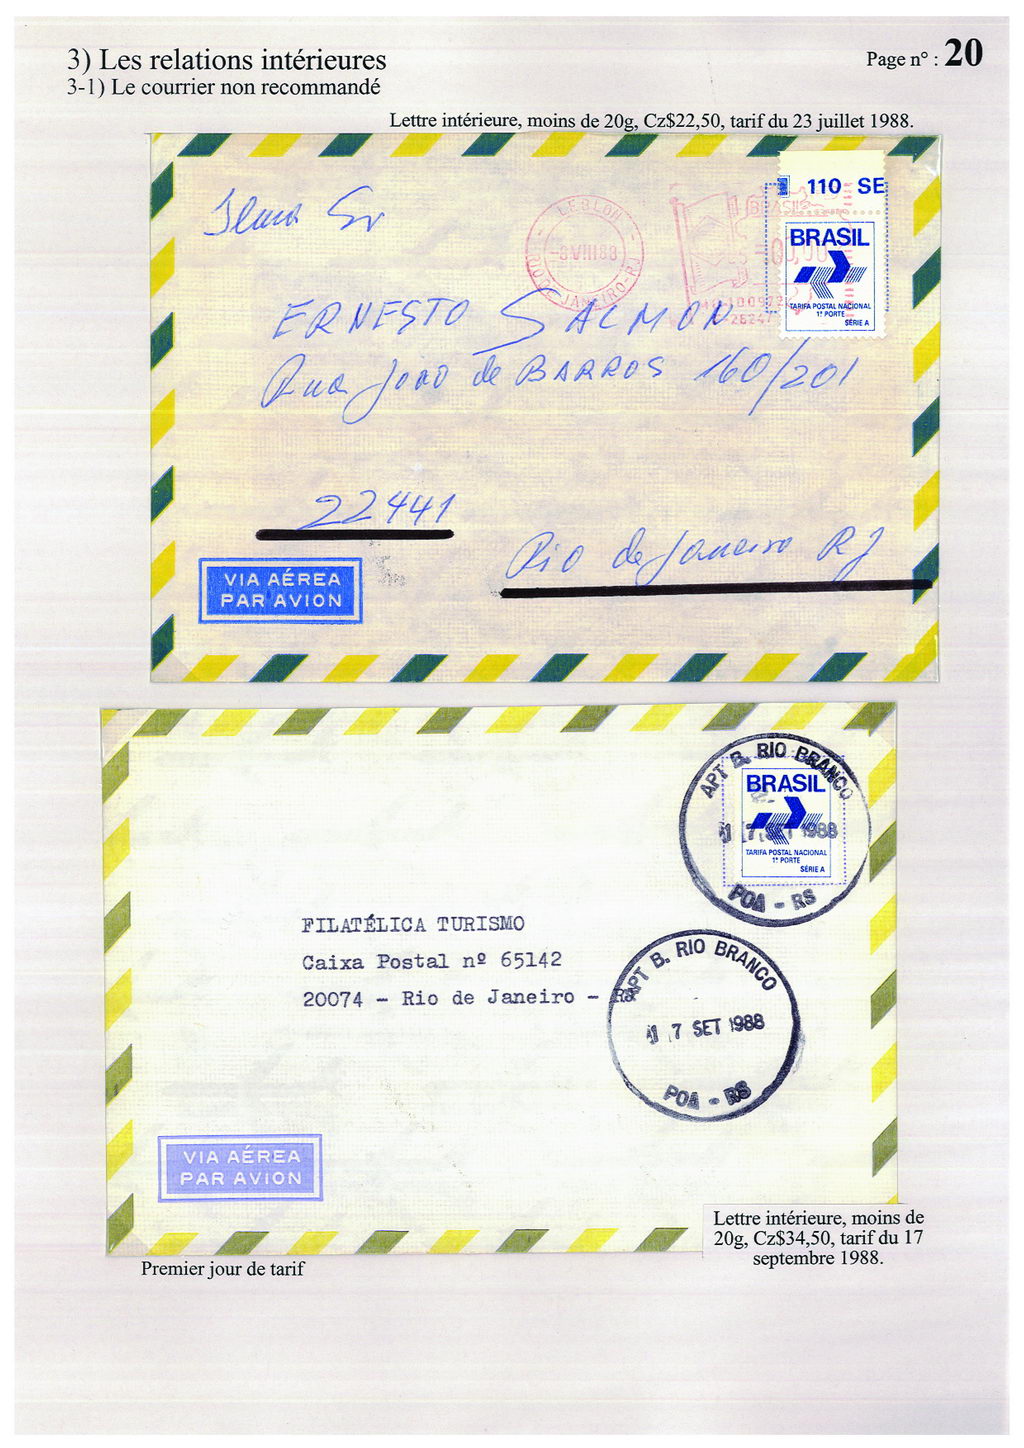 3) Les relations intérieures
Page n° : 20
3-1) Le courrier non recommandé
Lettre intérieure, moins de 20g, Cz$22,50, tarif du 23 juillet 1988.
110 SE
Ilmo Sr
LEBLON
-8 VIII 88
RIO DE JANEIRO-RJ
BRASIL
BRASIL
TARIFA POSTAL NACIONAL
1º PORTE
SÉRIE A
ERNESTO SALMON
Rua João de BARROS 160/201
22441
Rio de Janeiro RJ
VIA AÉREA
PAR AVION
APT B. RIO BRANCO
BRASIL
17 SET 1988
TARIFA POSTAL NACIONAL
1º PORTE
SÉRIE A
POA - RS
FILATÉLICA TURISMO
Caixa Postal nº 65142
20074 - Rio de Janeiro -
APT B. RIO BRANCO
17 SET 1988
POA - RS
VIA AÉREA
PAR AVION
Lettre intérieure, moins de
20g, Cz$34,50, tarif du 17
septembre 1988.
Premier jour de tarif